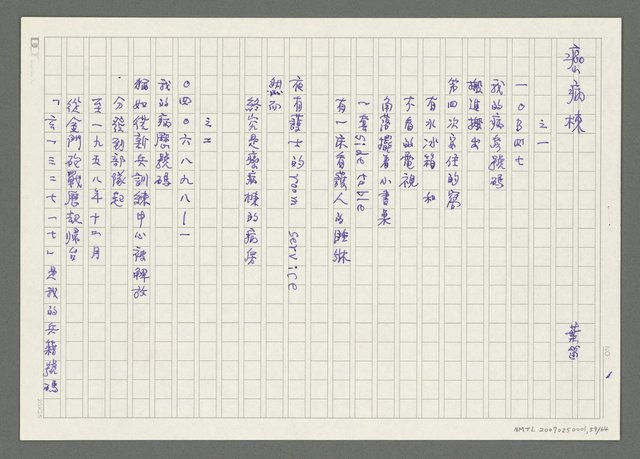 癌病棟
葉笛
之一
一〇B四七
我的病房號碼
搬進搬出
第四次寄住的窩
有水冰箱 和
不看的電視
角落擺着小書桌
一套side table
有一床看護人的睡牀
夜有護士的room service
然而
終究是癌病棟的病房
之二
〇四〇六八九八-一
我的病歷號碼
猶如從新兵訓練中心被解放
分發到部隊起
至一九五八年十二月
從金門砲戰歷劫歸台
「玄一三二七一七」是我的兵籍號碼
NO. 1
20×25
NMTL 20090250001,59/64